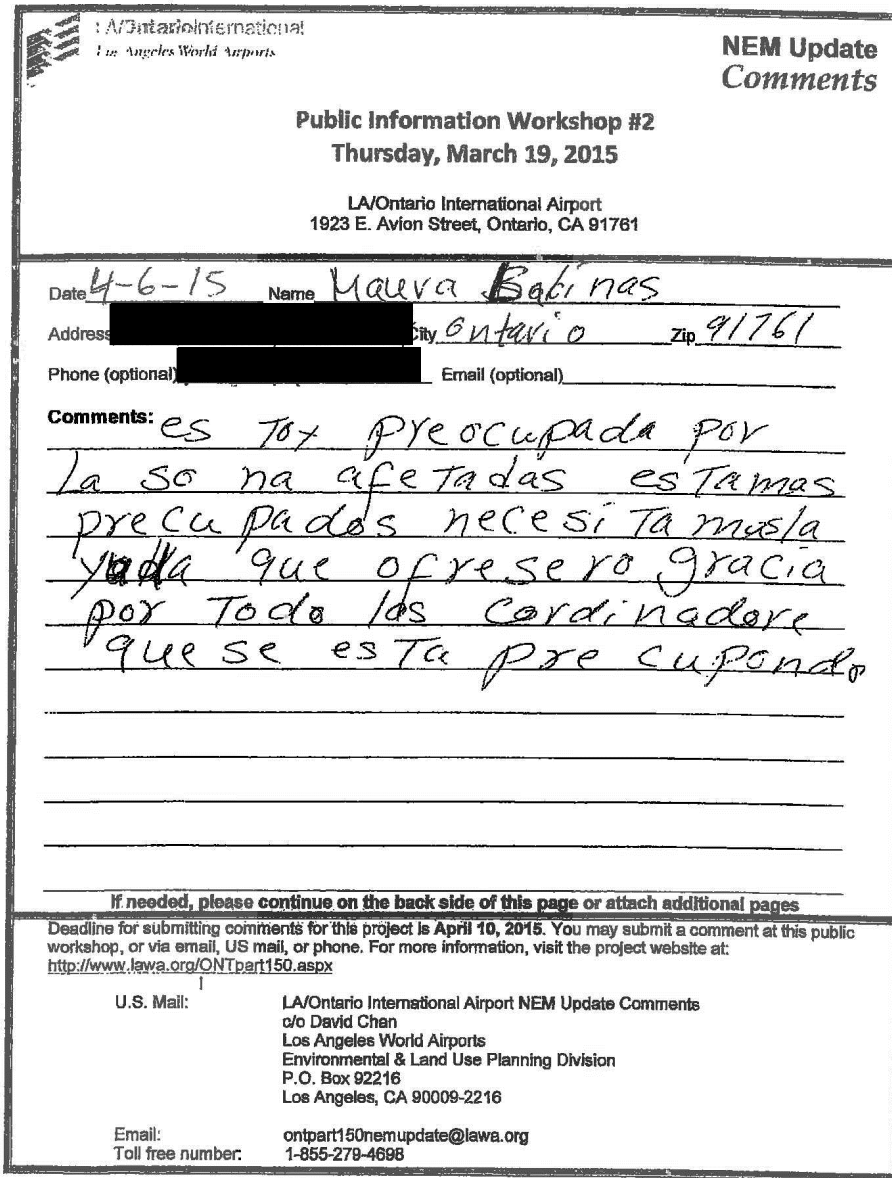 LA/OntarioInternational
Los Angeles World Airports
NEM Update
Comments
Public Information Workshop #2
Thursday, March 19, 2015
LA/Ontario International Airport
1923 E. Avion Street, Ontario, CA 91761
Date 4-6-15 Name Maura
Address City Ontario Zip 91761
Phone (optional) Email (optional)
Comments: es Toy preocupada por
la so na afeTadas esTamas
precupados necesiTamusla
que ofresero gracia
por Todo los Cordinadore
que se esTa precupondo
If needed, please continue on the back side of this page or attach additional pages
Deadline for submitting comments for this project is April 10, 2015. You may submit a comment at this public
workshop, or via email, US mail, or phone. For more information, visit the project website at:
http://www.lawa.org/ONTpart150.aspx
U.S. Mail: LA/Ontario International Airport NEM Update Comments
c/o David Chan
Los Angeles World Airports
Environmental & Land Use Planning Division
P.O. Box 92216
Los Angeles, CA 90009-2216
Email: ontpart150nemupdate@lawa.org
Toll free number: 1-855-279-4698